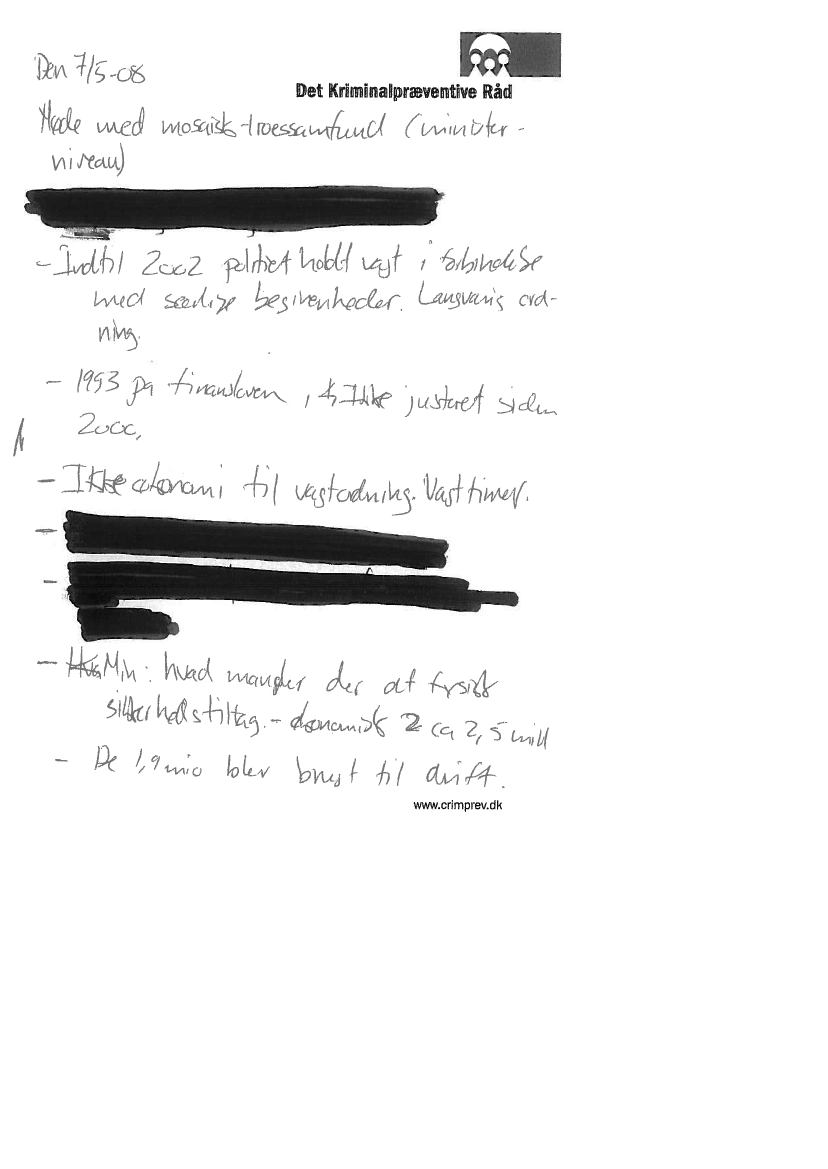 Den 7/5-08
Det Kriminalpræventive Råd
Møde med mosaisk troessamfund (minister-
niveau)
- Indtil 2002 politiet holdt vagt i forbindelse
med særlige begivenheder. Langvarig ord-
ning.
- 1993 på finansloven, Ikke justeret siden
2000,
- Ikke økonomi til vagtordning. Vagttimer.
-
-
- Min: hvad mangler der af fysisk
sikkerhedstiltag. - økonomisk 2 ca 2,5 mill
- De 1,9 mio blev brugt til drift.
www.crimprev.dk